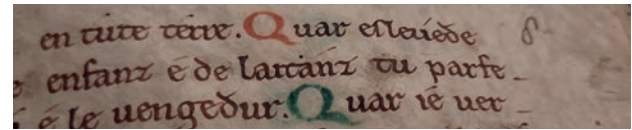 en tute terre. Quar esleuéde
enfanz e de laitanz tu parfe
é le uengeður. Quar ié uer